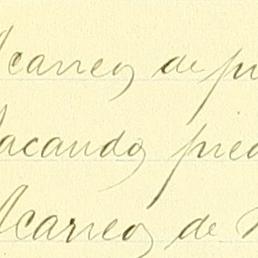 Acarreo de pi
Sacando pied
Acarreo de